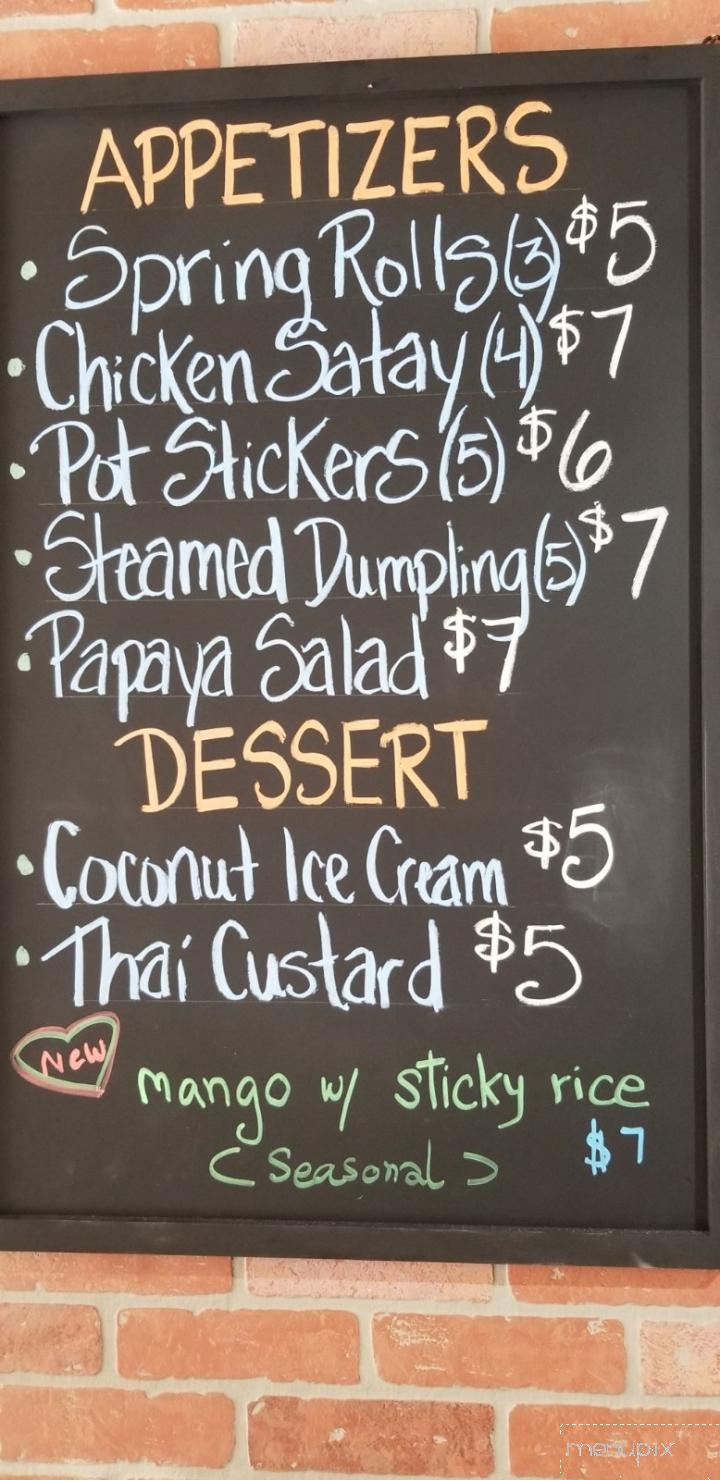 APPETIZERS
• Spring Rolls (3) $5
• Chicken Satay (4) $7
• Pot Stickers (5) $6
• Steamed Dumpling (5) $7
• Papaya Salad $7
DESSERT
• Coconut Ice Cream $5
• Thai Custard $5
New mango w/ sticky rice
(Seasonal) $7
menupix